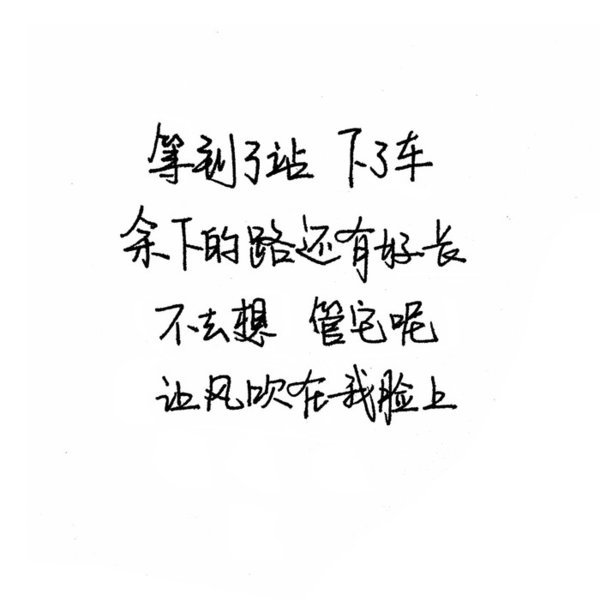 等到了站 下了车
余下的路还有好长
不去想 管它呢
让风吹在我脸上